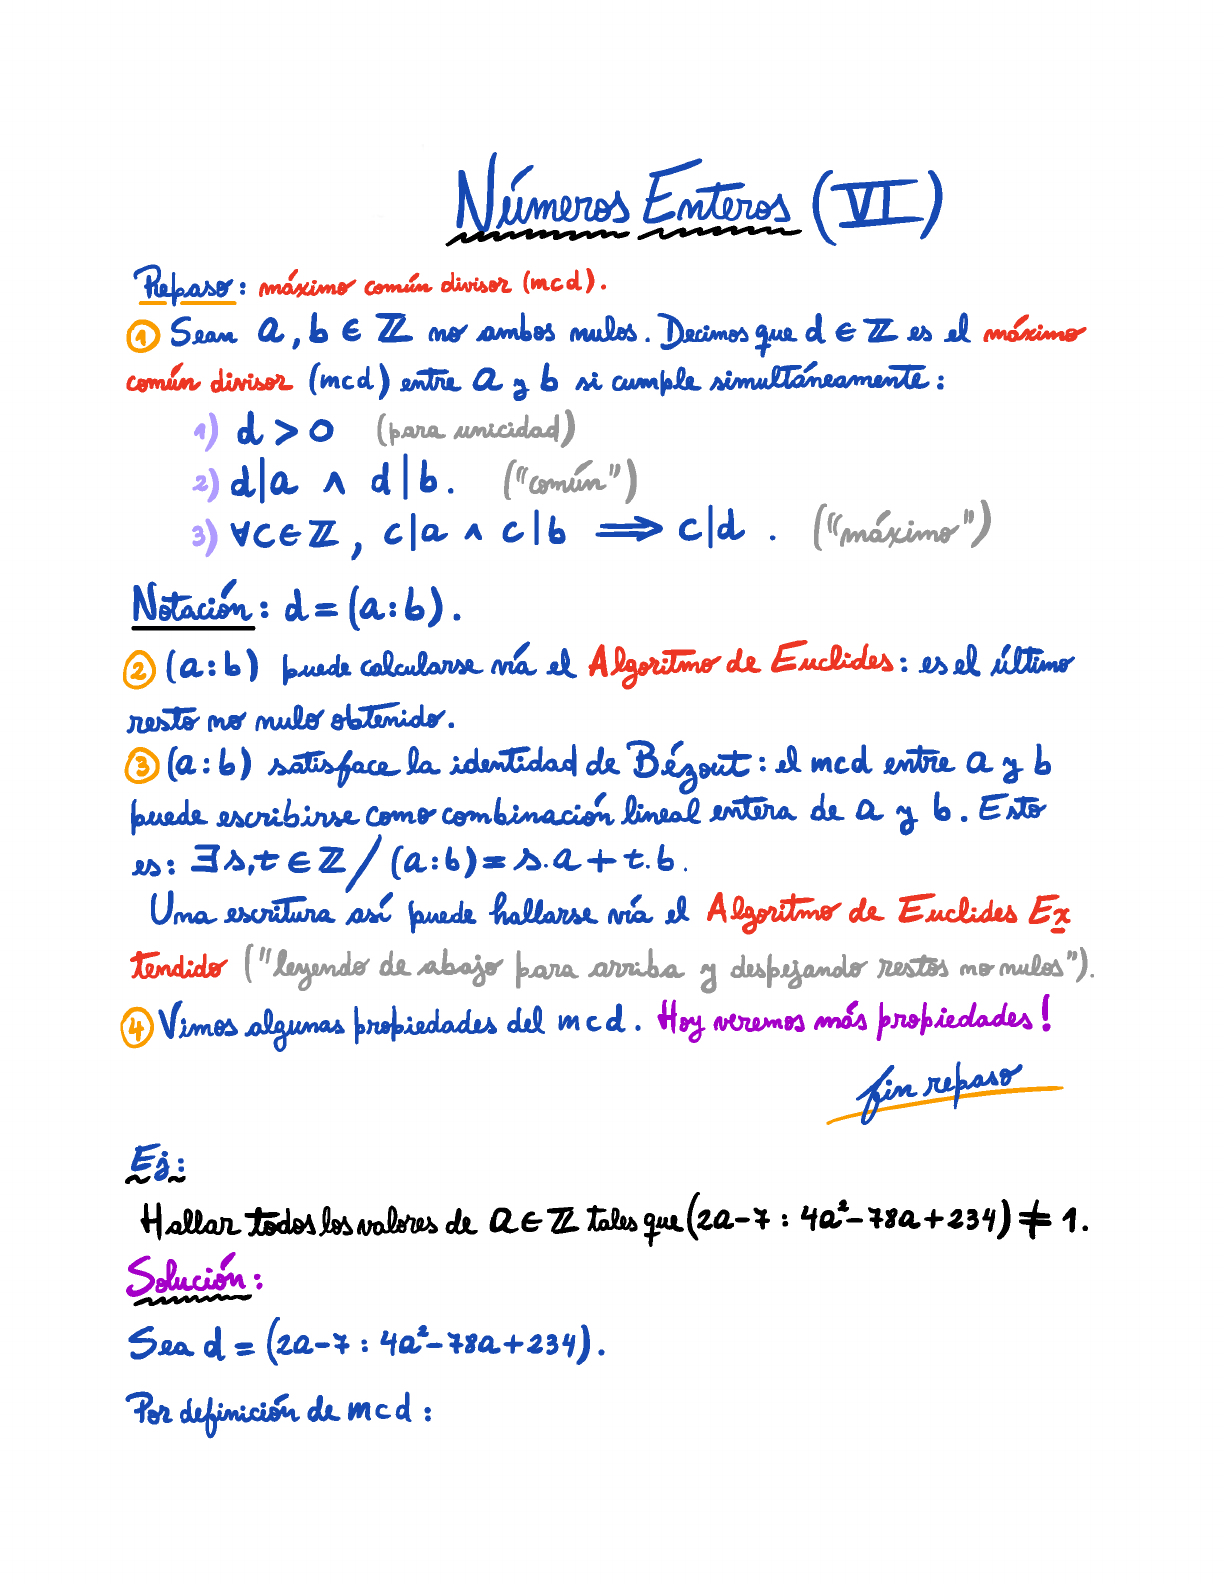 Números Enteros (VI)
Repaso: máximo común divisor (mcd).
① Sean a, b ∈ ℤ no ambos nulos. Decimos que d ∈ ℤ es el máximo
común divisor (mcd) entre a y b si cumple simultáneamente:
1) d > 0 (para unicidad)
2) d|a ∧ d|b. ("común")
3) ∀c∈ℤ, c|a ∧ c|b ⟹ c|d. ("máximo")
Notación: d = (a:b).
② (a:b) puede calcularse vía el Algoritmo de Euclides: es el último
resto no nulo obtenido.
③ (a:b) satisface la identidad de Bézout: el mcd entre a y b
puede escribirse como combinación lineal entera de a y b. Esto
es: ∃s,t ∈ ℤ / (a:b) = s.a + t.b.
Una escritura así puede hallarse vía el Algoritmo de Euclides Ex
tendido ("leyendo de abajo para arriba y despejando restos no nulos").
④ Vimos algunas propiedades del mcd. Hoy veremos más propiedades!
fin repaso
Ej:
Hallar todos los valores de a ∈ ℤ tales que (2a-7 : 4a²-78a+234) ≠ 1.
Solución:
Sea d = (2a-7 : 4a²-78a+234).
Por definición de mcd: